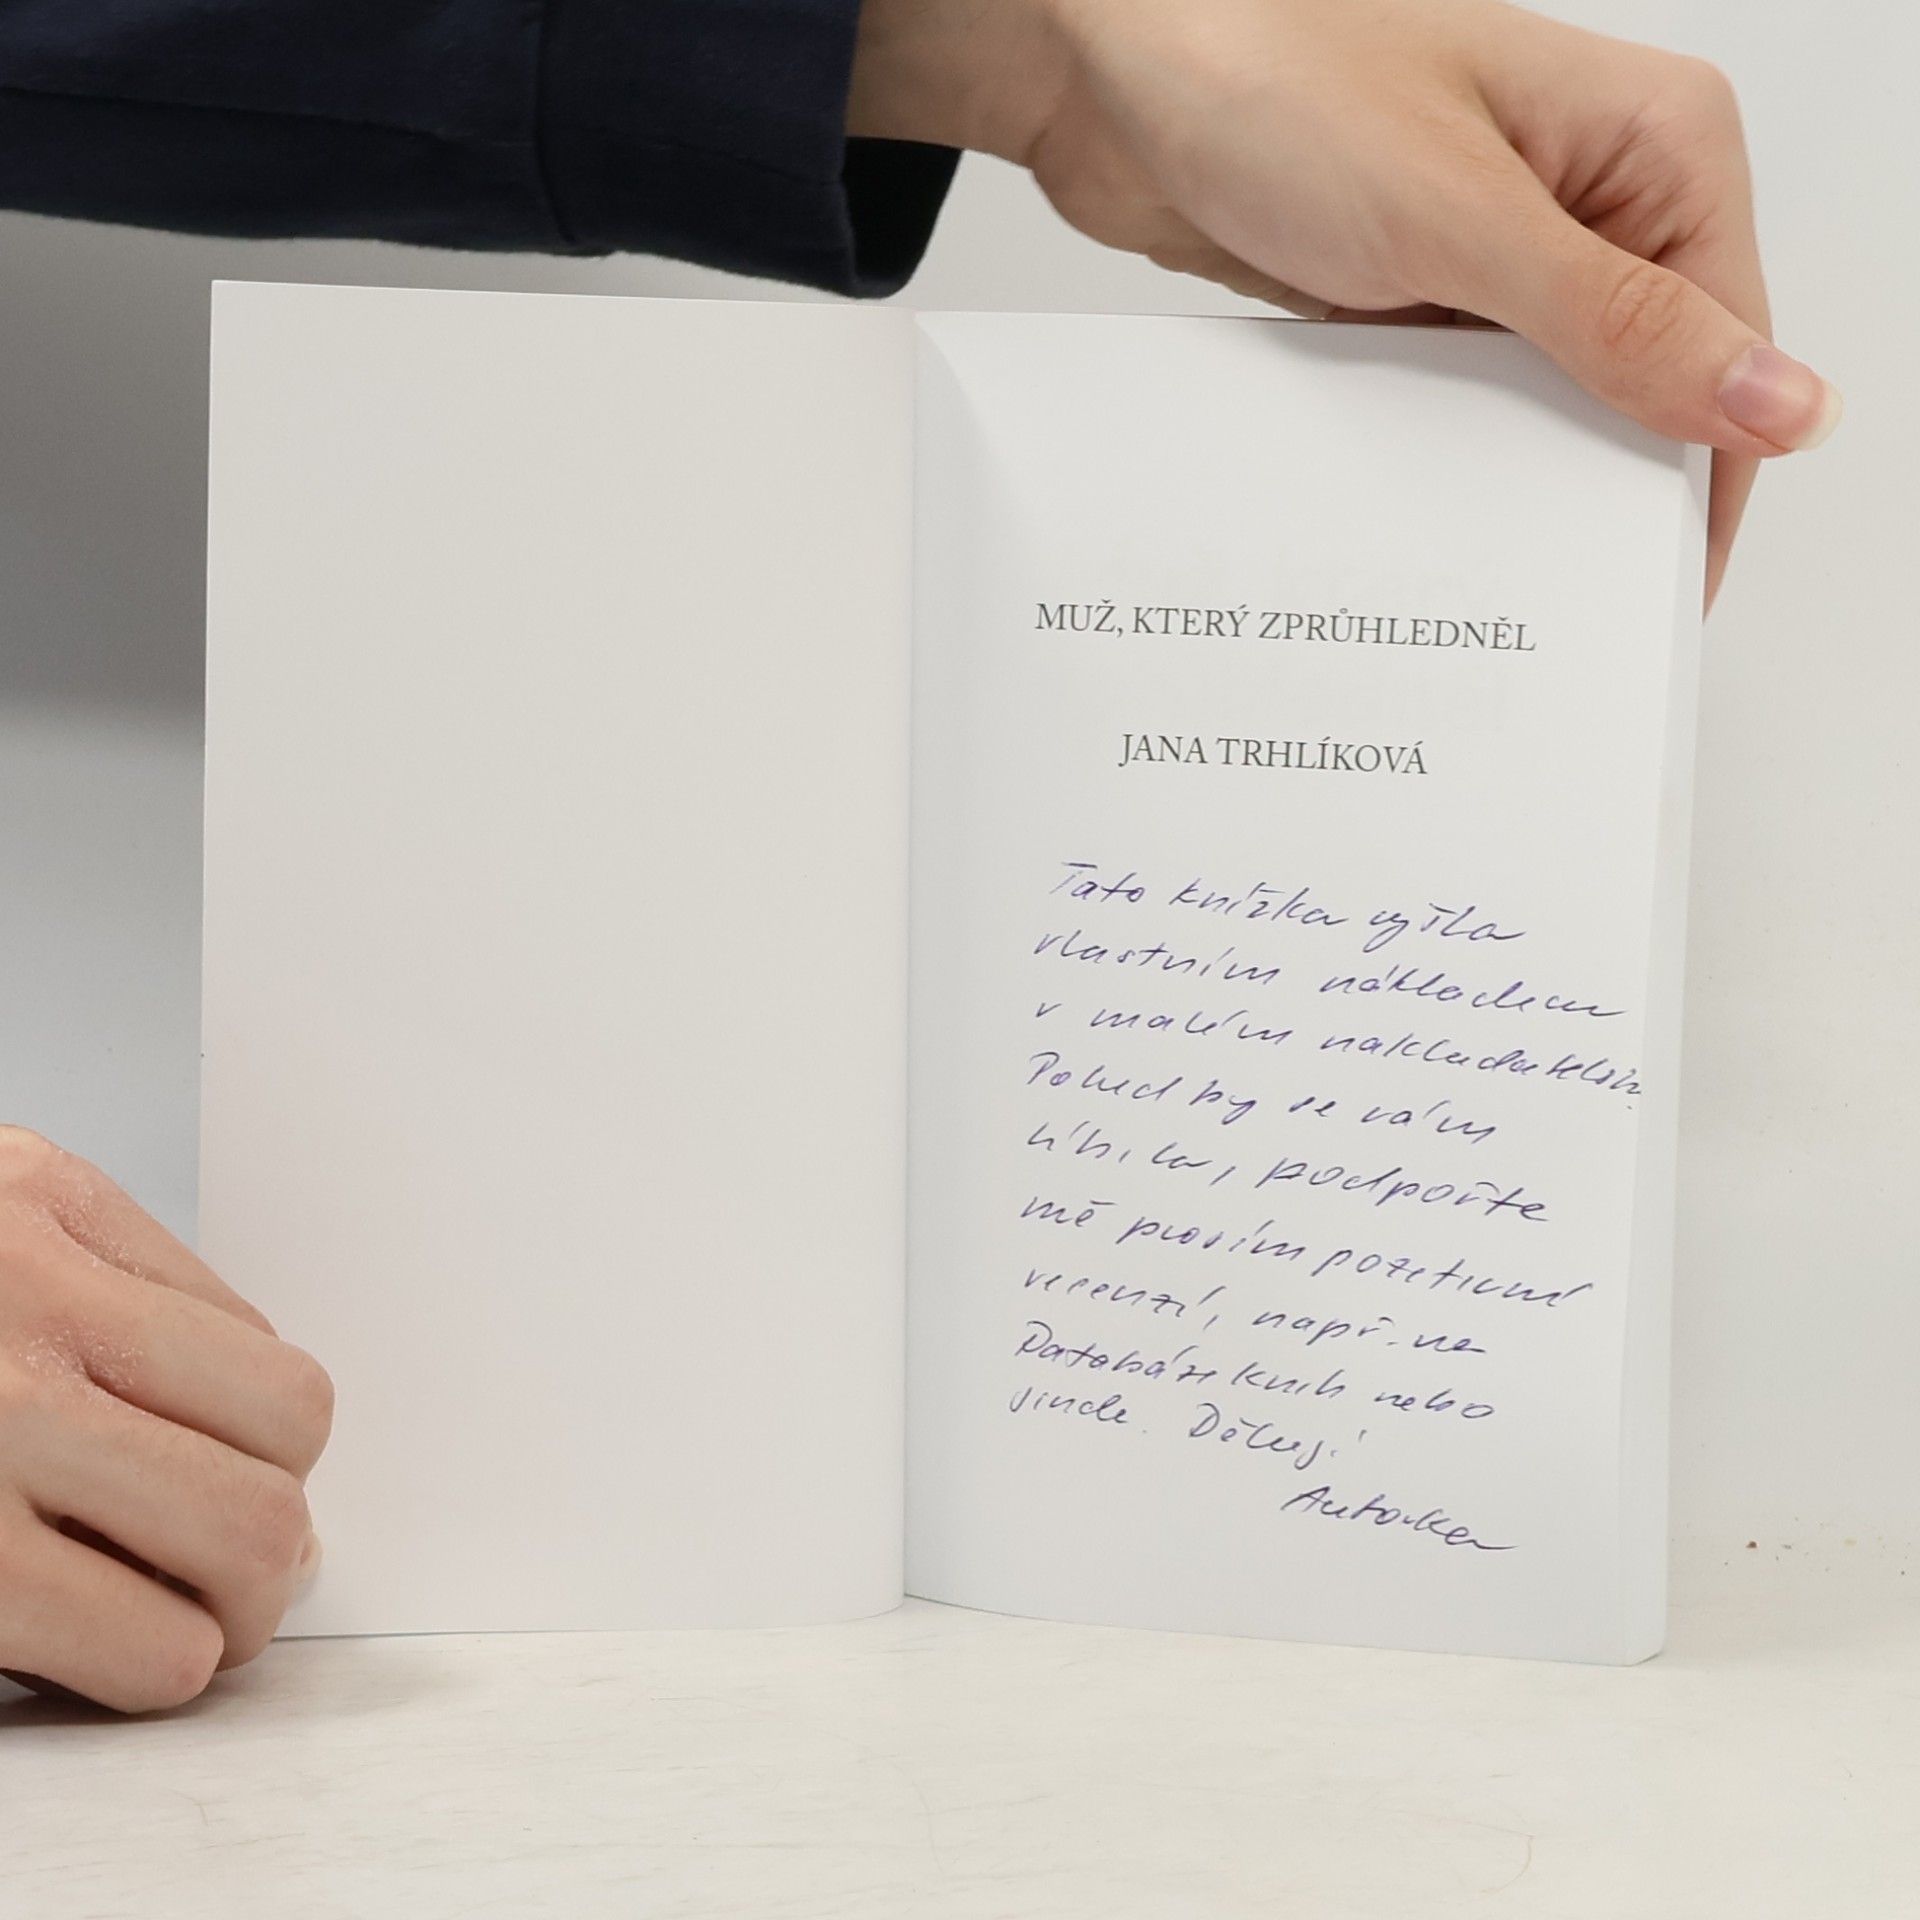 MUŽ, KTERÝ ZPRŮHLEDNĚL
JANA TRHLÍKOVÁ
Tato knížka vyšla
vlastním nákladem
v malém nakladatelství.
Pokud by se vám
líbila, podpořte
mě prosím pozitivní
recenzí, např. na
Databázi knih nebo
jinde. Děkuji!
Autorka